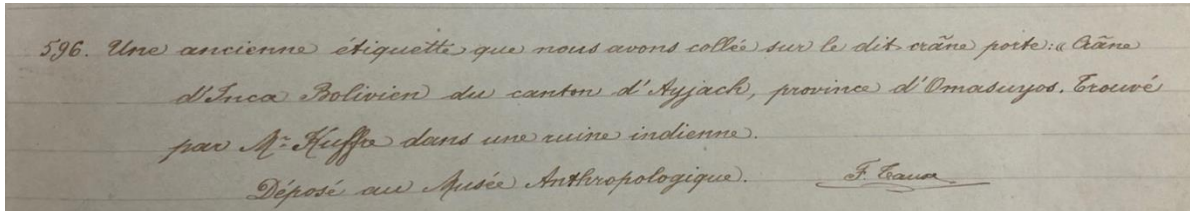 596. Une ancienne étiquette que nous avons collée sur le dit crâne porte: « Crâne
d'Inca Bolivien du canton d'Ayjach, province d'Omasuyos. Trouvé
par Mr. Kuffre dans une ruine indienne.
Déposé au Musée Anthropologique. F.